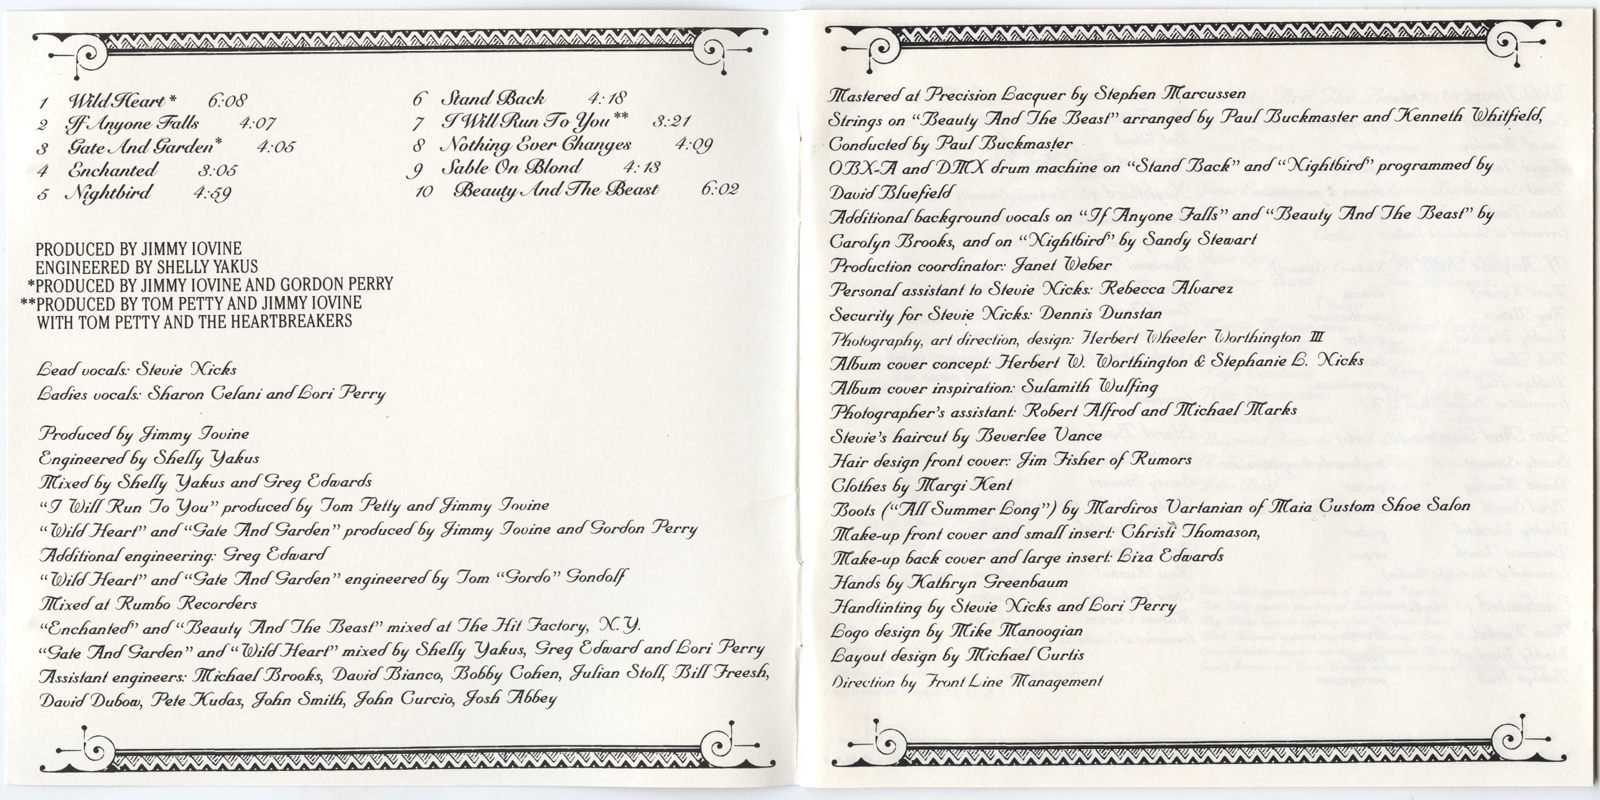 1 Wild Heart * 6:08
2 If Anyone Falls 4:07
3 Gate And Garden* 4:05
4 Enchanted 3:05
5 Nightbird 4:59
6 Stand Back 4:18
7 I Will Run To You ** 3:21
8 Nothing Ever Changes 4:09
9 Sable On Blond 4:13
10 Beauty And The Beast 6:02
PRODUCED BY JIMMY IOVINE
ENGINEERED BY SHELLY YAKUS
*PRODUCED BY JIMMY IOVINE AND GORDON PERRY
**PRODUCED BY TOM PETTY AND JIMMY IOVINE
WITH TOM PETTY AND THE HEARTBREAKERS
Lead vocals: Stevie Nicks
Ladies vocals: Sharon Celani and Lori Perry
Produced by Jimmy Iovine
Engineered by Shelly Yakus
Mixed by Shelly Yakus and Greg Edwards
"I Will Run To You" produced by Tom Petty and Jimmy Iovine
"Wild Heart" and "Gate And Garden" produced by Jimmy Iovine and Gordon Perry
Additional engineering: Greg Edward
"Wild Heart" and "Gate And Garden" engineered by Tom "Gordo" Gondolf
Mixed at Rumbo Recorders
"Enchanted" and "Beauty And The Beast" mixed at The Hit Factory, N.Y.
"Gate And Garden" and "Wild Heart" mixed by Shelly Yakus, Greg Edward and Lori Perry
Assistant engineers: Michael Brooks, David Bianco, Bobby Cohen, Julian Stoll, Bill Freesh,
David Dubow, Pete Kudas, John Smith, John Curcio, Josh Abbey
Mastered at Precision Lacquer by Stephen Marcussen
Strings on "Beauty And The Beast" arranged by Paul Buckmaster and Kenneth Whitfield,
Conducted by Paul Buckmaster
OBX-A and DMX drum machine on "Stand Back" and "Nightbird" programmed by
David Bluefield
Additional background vocals on "If Anyone Falls" and "Beauty And The Beast" by
Carolyn Brooks, and on "Nightbird" by Sandy Stewart
Production coordinator: Janet Weber
Personal assistant to Stevie Nicks: Rebecca Alvarez
Security for Stevie Nicks: Dennis Dunstan
Photography, art direction, design: Herbert Wheeler Worthington III
Album cover concept: Herbert W. Worthington & Stephanie L. Nicks
Album cover inspiration: Sulamith Wulfing
Photographer's assistant: Robert Alfrod and Michael Marks
Stevie's haircut by Beverlee Vance
Hair design front cover: Jim Fisher of Rumors
Clothes by Margi Kent
Boots ("All Summer Long") by Mardiros Vartanian of Maia Custom Shoe Salon
Make-up front cover and small insert: Christi Thomason,
Make-up back cover and large insert: Liza Edwards
Hands by Kathryn Greenbaum
Handtinting by Stevie Nicks and Lori Perry
Logo design by Mike Manoogian
Layout design by Michael Curtis
Direction by Front Line Management